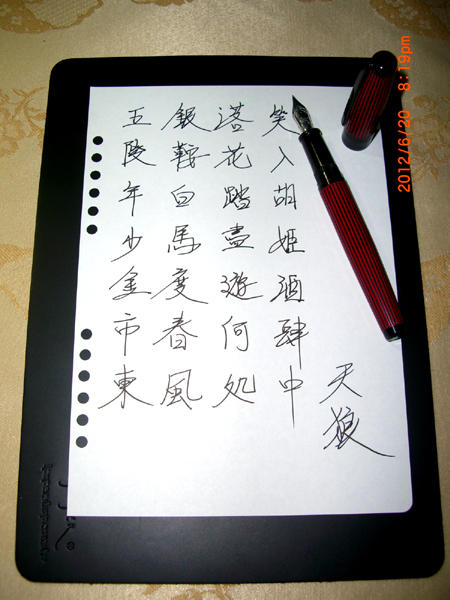 五陵年少金市東
銀鞍白馬度春風
落花踏盡遊何処
笑入胡姬酒肆中
天狼
2012/6/20 8:19pm